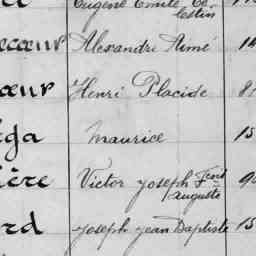 Eugène Emile Cé-
lestin
ecœur Alexandre Aimé 14
œur Henri Placide 8
ga Maurice 15
ière Victor Joseph Fend
Auguste 9
rd Joseph Jean Baptiste 15